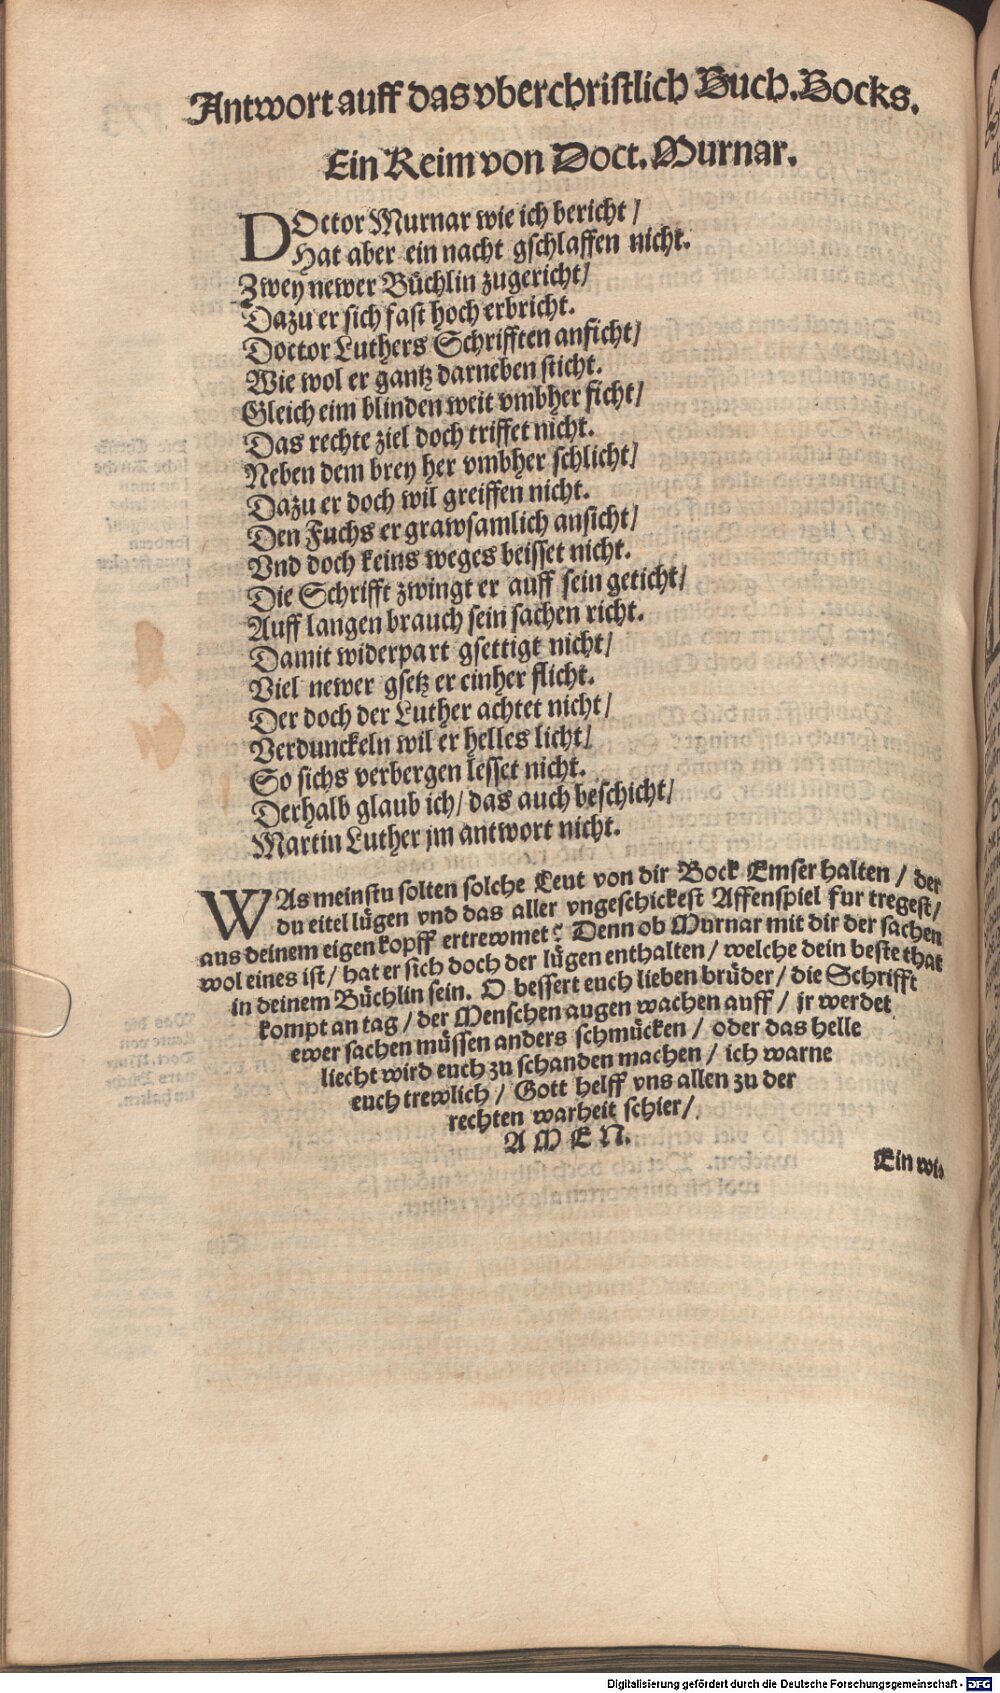 Antwort auff das vberchristlich Buch. Bocks.
Ein Reim von Doct. Murnar.
DOctor Murnar wie ich bericht /
Hat aber ein nacht gschlaffen nicht.
Zwey newer Büchlin zugericht /
Dazu er sich fast hoch erbricht.
Doctor Luthers Schrifften anficht /
Wie wol er gantz darneben sticht.
Gleich eim blinden weit vmbher ficht /
Das rechte ziel doch triffet nicht.
Neben dem brey her vmbher schlicht /
Dazu er doch wil greiffen nicht.
Den Fuchs er grawsamlich ansicht /
Vnd doch keins weges beisset nicht.
Die Schrifft zwingt er auff sein geticht /
Auff langen brauch sein sachen richt.
Damit widerpart gsettigt nicht /
Viel newer gsetz er einher flicht.
Der doch der Luther achtet nicht /
Verdunckeln wil er helles licht /
So sichs verbergen lesset nicht.
Derhalb glaub ich / das auch beschicht /
Martin Luther jm antwort nicht.
WAs meinstu solten solche Leut von dir Bock Emser halten / der
du eitel lügen vnd das aller vngeschickest Affenspiel fur tregest /
aus deinem eigen kopff ertrewmet? Denn ob Murnar mit dir der sachen
wol eines ist / hat er sich doch der lügen enthalten / welche dein beste that
in deinem Büchlin sein. O bessert euch lieben brüder / die Schrifft
kompt an tag / der Menschen augen wachen auff / jr werdet
ewer sachen müssen anders schmücken / oder das helle
liecht wird euch zu schanden machen / ich warne
euch trewlich / Gott helff vns allen zu der
rechten warheit schier /
AMEN.
Ein wi
Digitalisierung gefördert durch die Deutsche Forschungsgemeinschaft - DFG